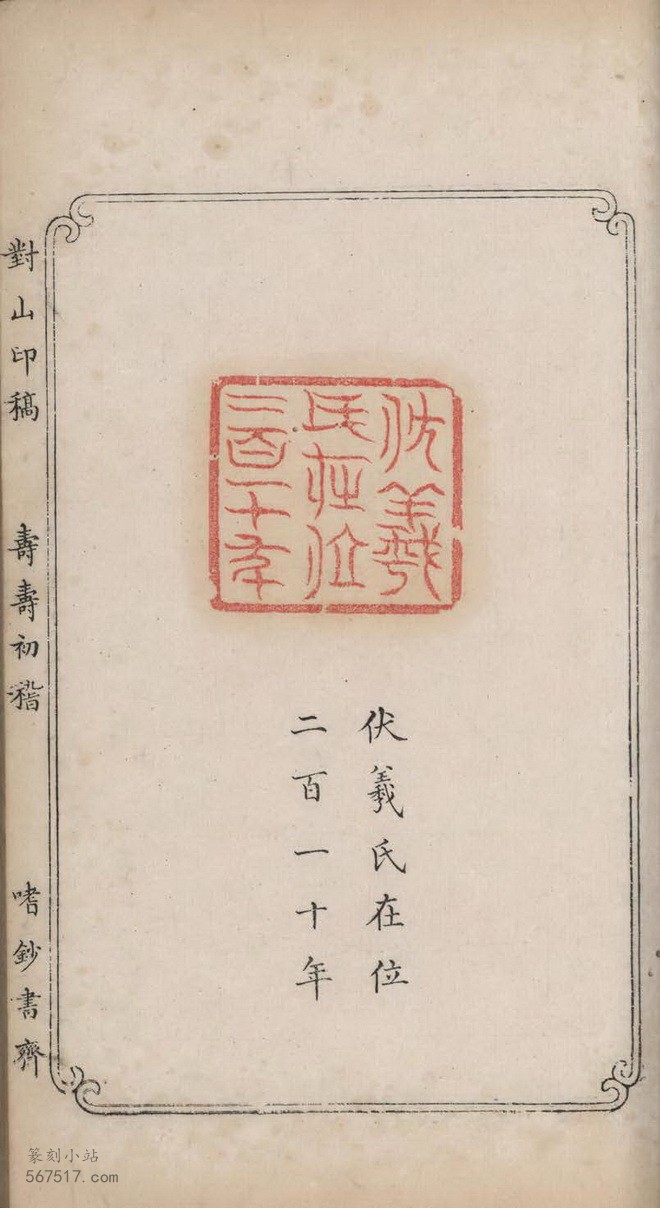 伏羲
氏在位
二百一十年
伏羲氏在位
二百一十年
對山印稿 壽壽初稽 嗜鈔書齊
篆刻小站
567517.com